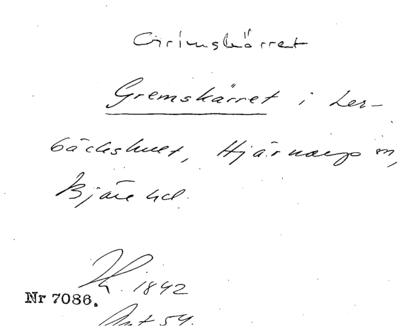 Grimskärret
Gremskärret i Ler-
bäckshult, Hjärnarp sn,
Bjäre hd.
Lk. 1842
Nr 7086.
Ant 54.